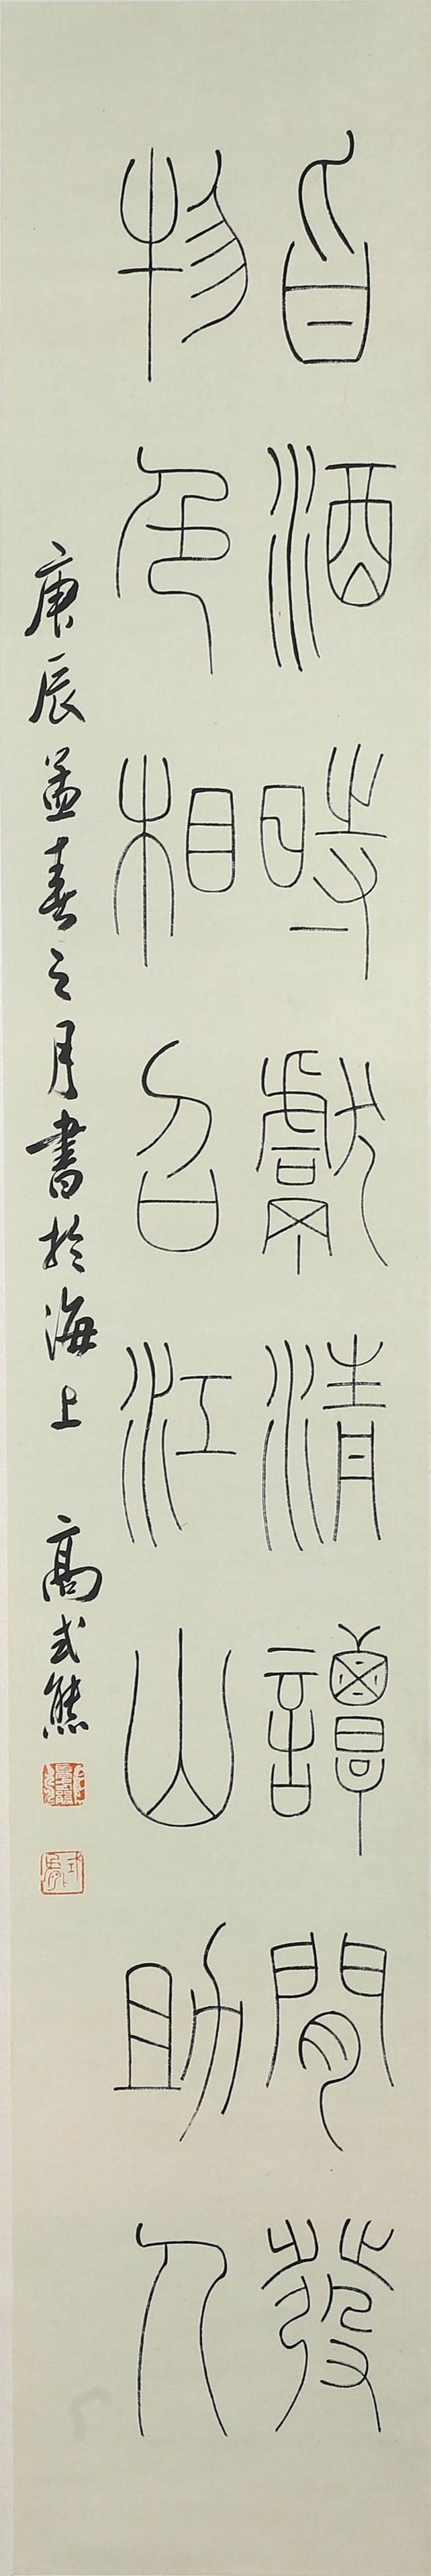 旨酒時獻清譚閒發
物色相召江山助人
庚辰孟春之月書於海上 高式熊